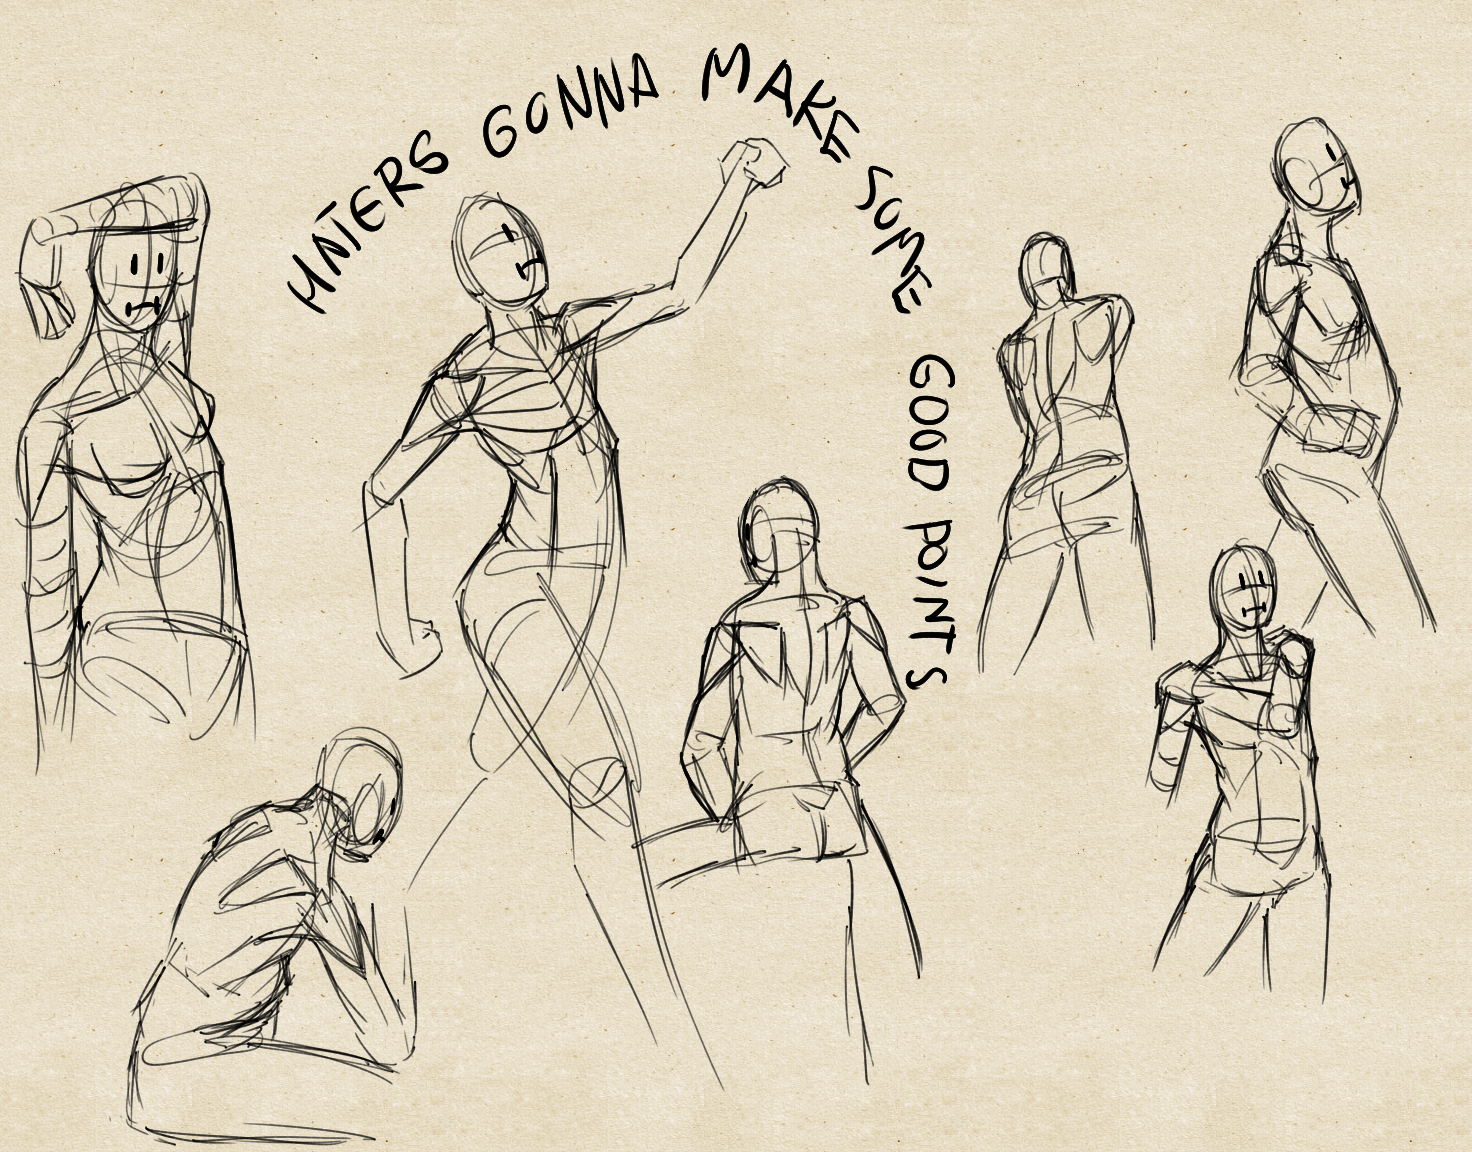 HATERS GONNA MAKE SOME GOOD POINTS